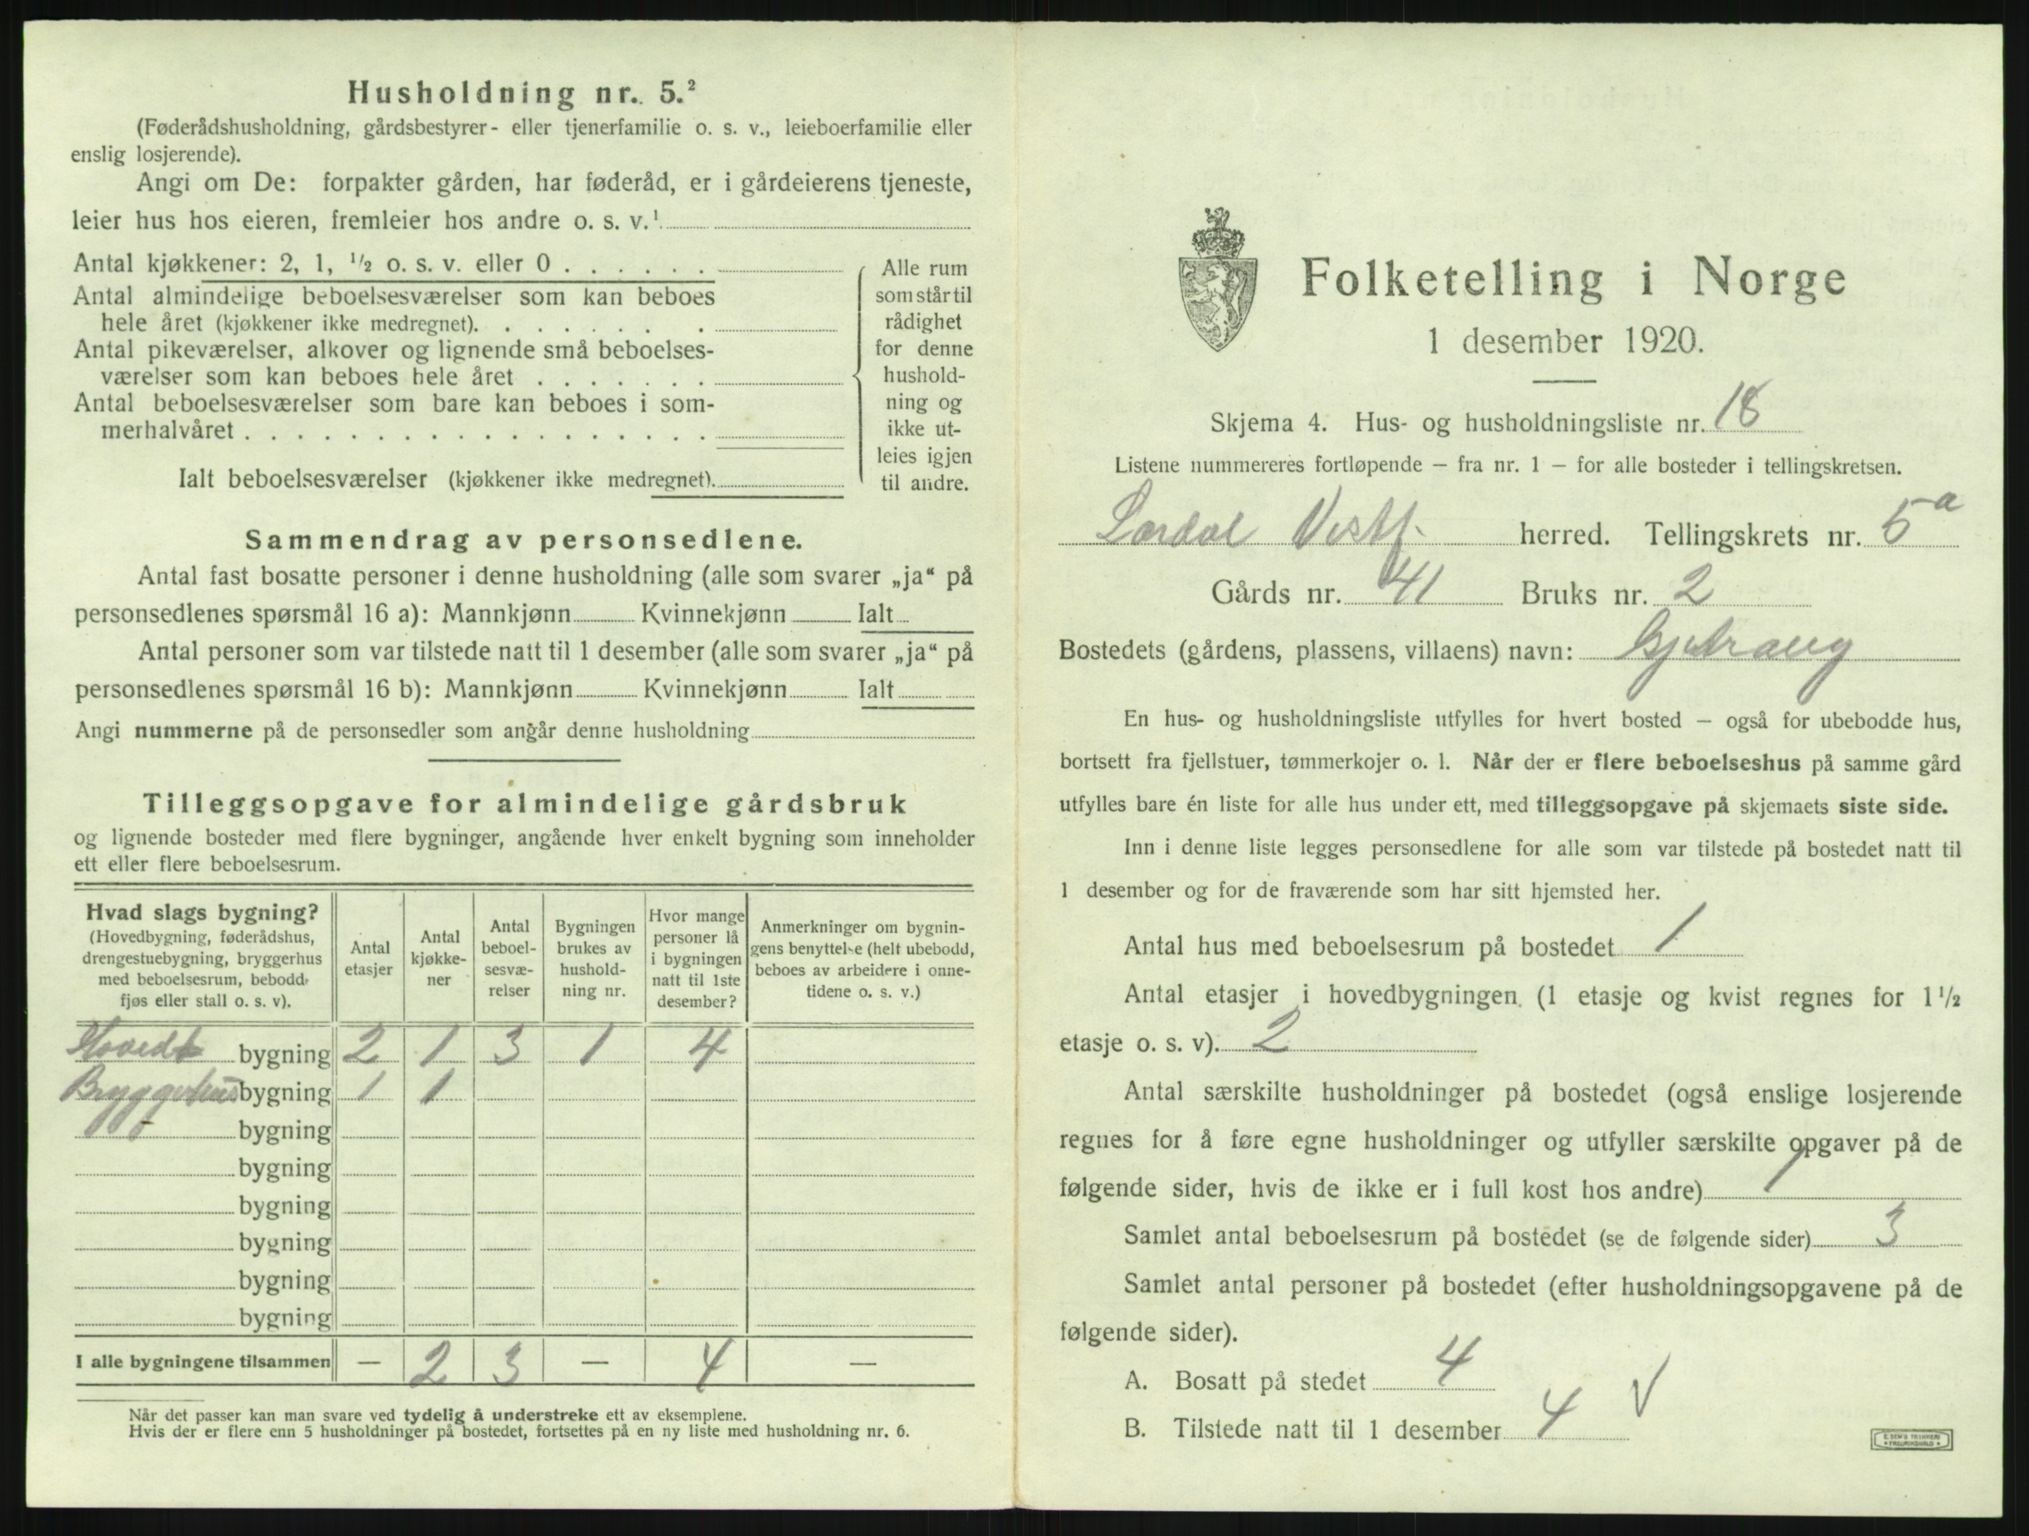 Husholdning nr. 5.²
(Føderådshusholdning, gårdsbestyrer- eller tjenerfamilie o. s. v., leieboerfamilie eller
enslig losjerende).
Angi om De: forpakter gården, har føderåd, er i gårdeierens tjeneste,
leier hus hos eieren, fremleier hos andre o. s. v.¹
Antal kjøkkener: 2, 1, ½ o. s. v. eller 0 . . . . . .
Antal almindelige beboelsesværelser som kan beboes
hele året (kjøkkener ikke medregnet). . . . . . . . .
Antal pikeværelser, alkover og lignende små beboelses-
værelser som kan beboes hele året . . . . . . .
Antal beboelsesværelser som bare kan beboes i som-
merhalvåret . . . . . . . . . . . . . . . . . .
Ialt beboelsesværelser (kjøkkener ikke medregnet).
Alle rum
som står til
rådighet
for denne
hushold-
ning og
ikke ut-
leies igjen
til andre.
Sammendrag av personsedlene.
Antal fast bosatte personer i denne husholdning (alle som svarer „ja“ på
personsedlenes spørsmål 16 a): Mannkjønn Kvinnekjønn Ialt
Antal personer som var tilstede natt til 1 desember (alle som svarer „ja“ på
personsedlenes spørsmål 16 b): Mannkjønn Kvinnekjønn Ialt
Angi nummerne på de personsedler som angår denne husholdning
Tilleggsopgave for almindelige gårdsbruk
og lignende bosteder med flere bygninger, angående hver enkelt bygning som inneholder
ett eller flere beboelsesrum.
Hvad slags bygning?
(Hovedbygning, føderådshus,
drengestuebygning, bryggerhus
med beboelsesrum, bebodd
fjøs eller stall o. s. v).
Antal
etasjer
Antal
kjøkke-
ner
Antal
beboel-
sesvæ-
relser
Bygningen
brukes av
hushold-
ning nr.
Hvor mange
personer lå
i bygningen
natt til 1ste
desember?
Anmerkninger om bygnin-
gens benyttelse (helt ubebodd,
beboes av arbeidere i onne-
tidene o. s. v.)
Hovedb bygning 2 1 3 1 4
Bryggerhus bygning 1 1
bygning
bygning
bygning
bygning
bygning
bygning
I alle bygningene tilsammen — 2 3 — 4 —
Når det passer kan man svare ved tydelig å understreke ett av eksemplene.
Hvis der er flere enn 5 husholdninger på bostedet, fortsettes på en ny liste med husholdning nr. 6.
Folketelling i Norge
1 desember 1920.
Skjema 4. Hus- og husholdningsliste nr. 18
Listene nummereres fortløpende – fra nr. 1 – for alle bosteder i tellingskretsen.
Lardal Vestf. herred. Tellingskrets nr. 5a
Gårds nr. 41 Bruks nr. 2
Bostedets (gårdens, plassens, villaens) navn:
En hus- og husholdningsliste utfylles for hvert bosted – også for ubebodde hus,
bortsett fra fjellstuer, tømmerkojer o. l. Når der er flere beboelseshus på samme gård
utfylles bare én liste for alle hus under ett, med tilleggsopgave på skjemaets siste side.
Inn i denne liste legges personsedlene for alle som var tilstede på bostedet natt til
1 desember og for de fraværende som har sitt hjemsted her.
Antal hus med beboelsesrum på bostedet 1
Antal etasjer i hovedbygningen (1 etasje og kvist regnes for 1½
etasje o. s. v). 2
Antal særskilte husholdninger på bostedet (også enslige losjerende
regnes for å føre egne husholdninger og utfyller særskilte opgaver på de
følgende sider, hvis de ikke er i full kost hos andre) 1
Samlet antal beboelsesrum på bostedet (se de følgende sider) 3
Samlet antal personer på bostedet (efter husholdningsopgavene på de
følgende sider).
A. Bosatt på stedet 4
B. Tilstede natt til 1 desember 4 V